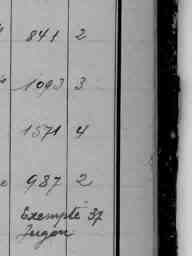 841 2
1093 3
1571 4
987 2
Exempté 37